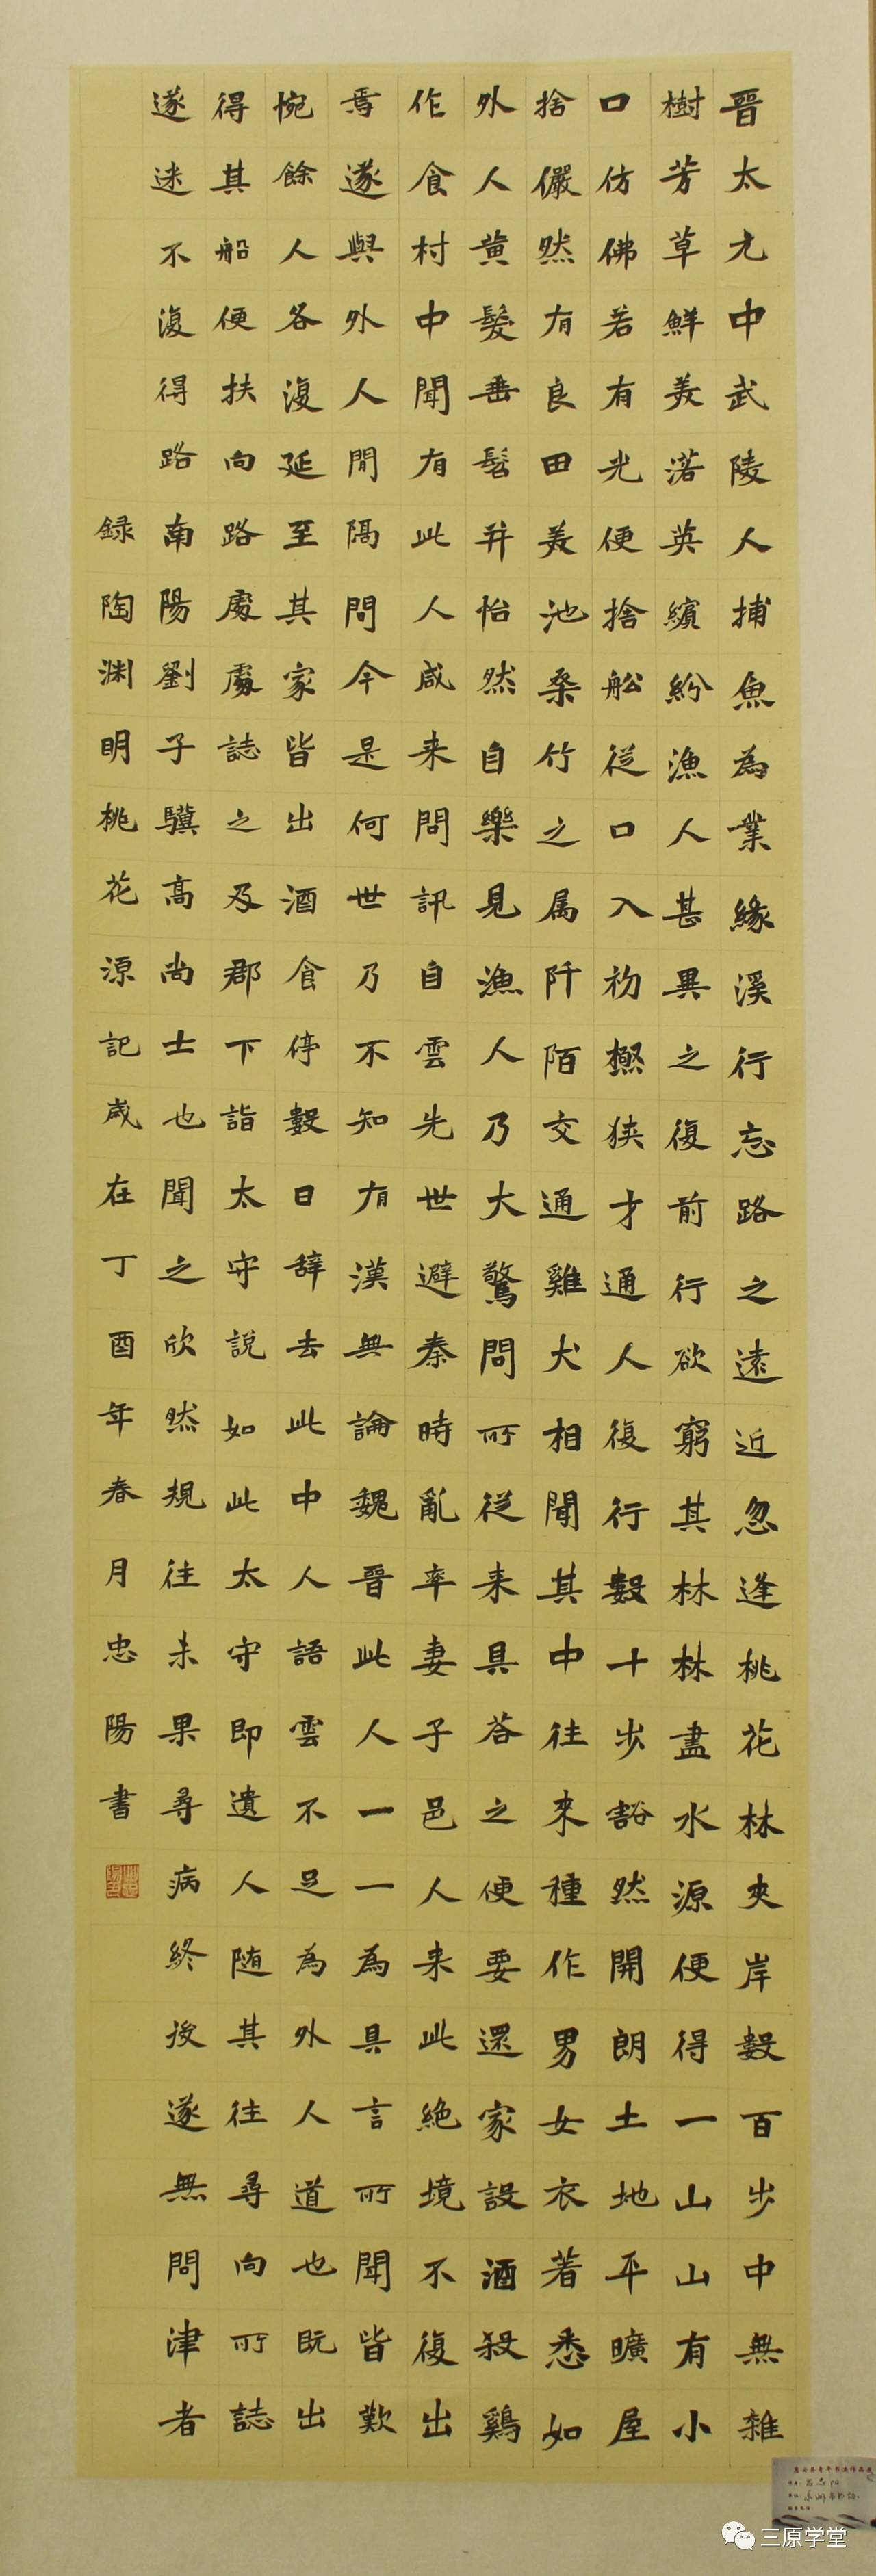 晋太元中武陵人捕魚為業緣溪行忘路之遠近忽逢桃花林夾岸數百步中無雜
樹芳草鮮美落英繽紛漁人甚異之復前行欲窮其林林盡水源便得一山山有小
口仿佛若有光便捨船從口入初極狹才通人復行數十步豁然開朗土地平曠屋
捨儼然有良田美池桑竹之属阡陌交通雞犬相聞其中往來種作男女衣著悉如
外人黄髮垂髫并怡然自樂見漁人乃大驚問所從来具答之便要還家設酒殺鷄
作食村中聞有此人咸来問訊自雲先世避秦時亂率妻子邑人来此絶境不復出
焉遂與外人間隔問今是何世乃不知有漢無論魏晋此人一一為具言所聞皆歎
惋餘人各復延至其家皆出酒食停數日辞去此中人語雲不足為外人道也既出
得其船便扶向路處處誌之及郡下詣太守說如此太守即遣人随其往尋向所誌
遂迷不復得路南陽劉子驥高尚士也聞之欣然規往未果尋病終後遂無問津者
録陶渊明桃花源記歲在丁酉年春月忠陽書
三原学堂